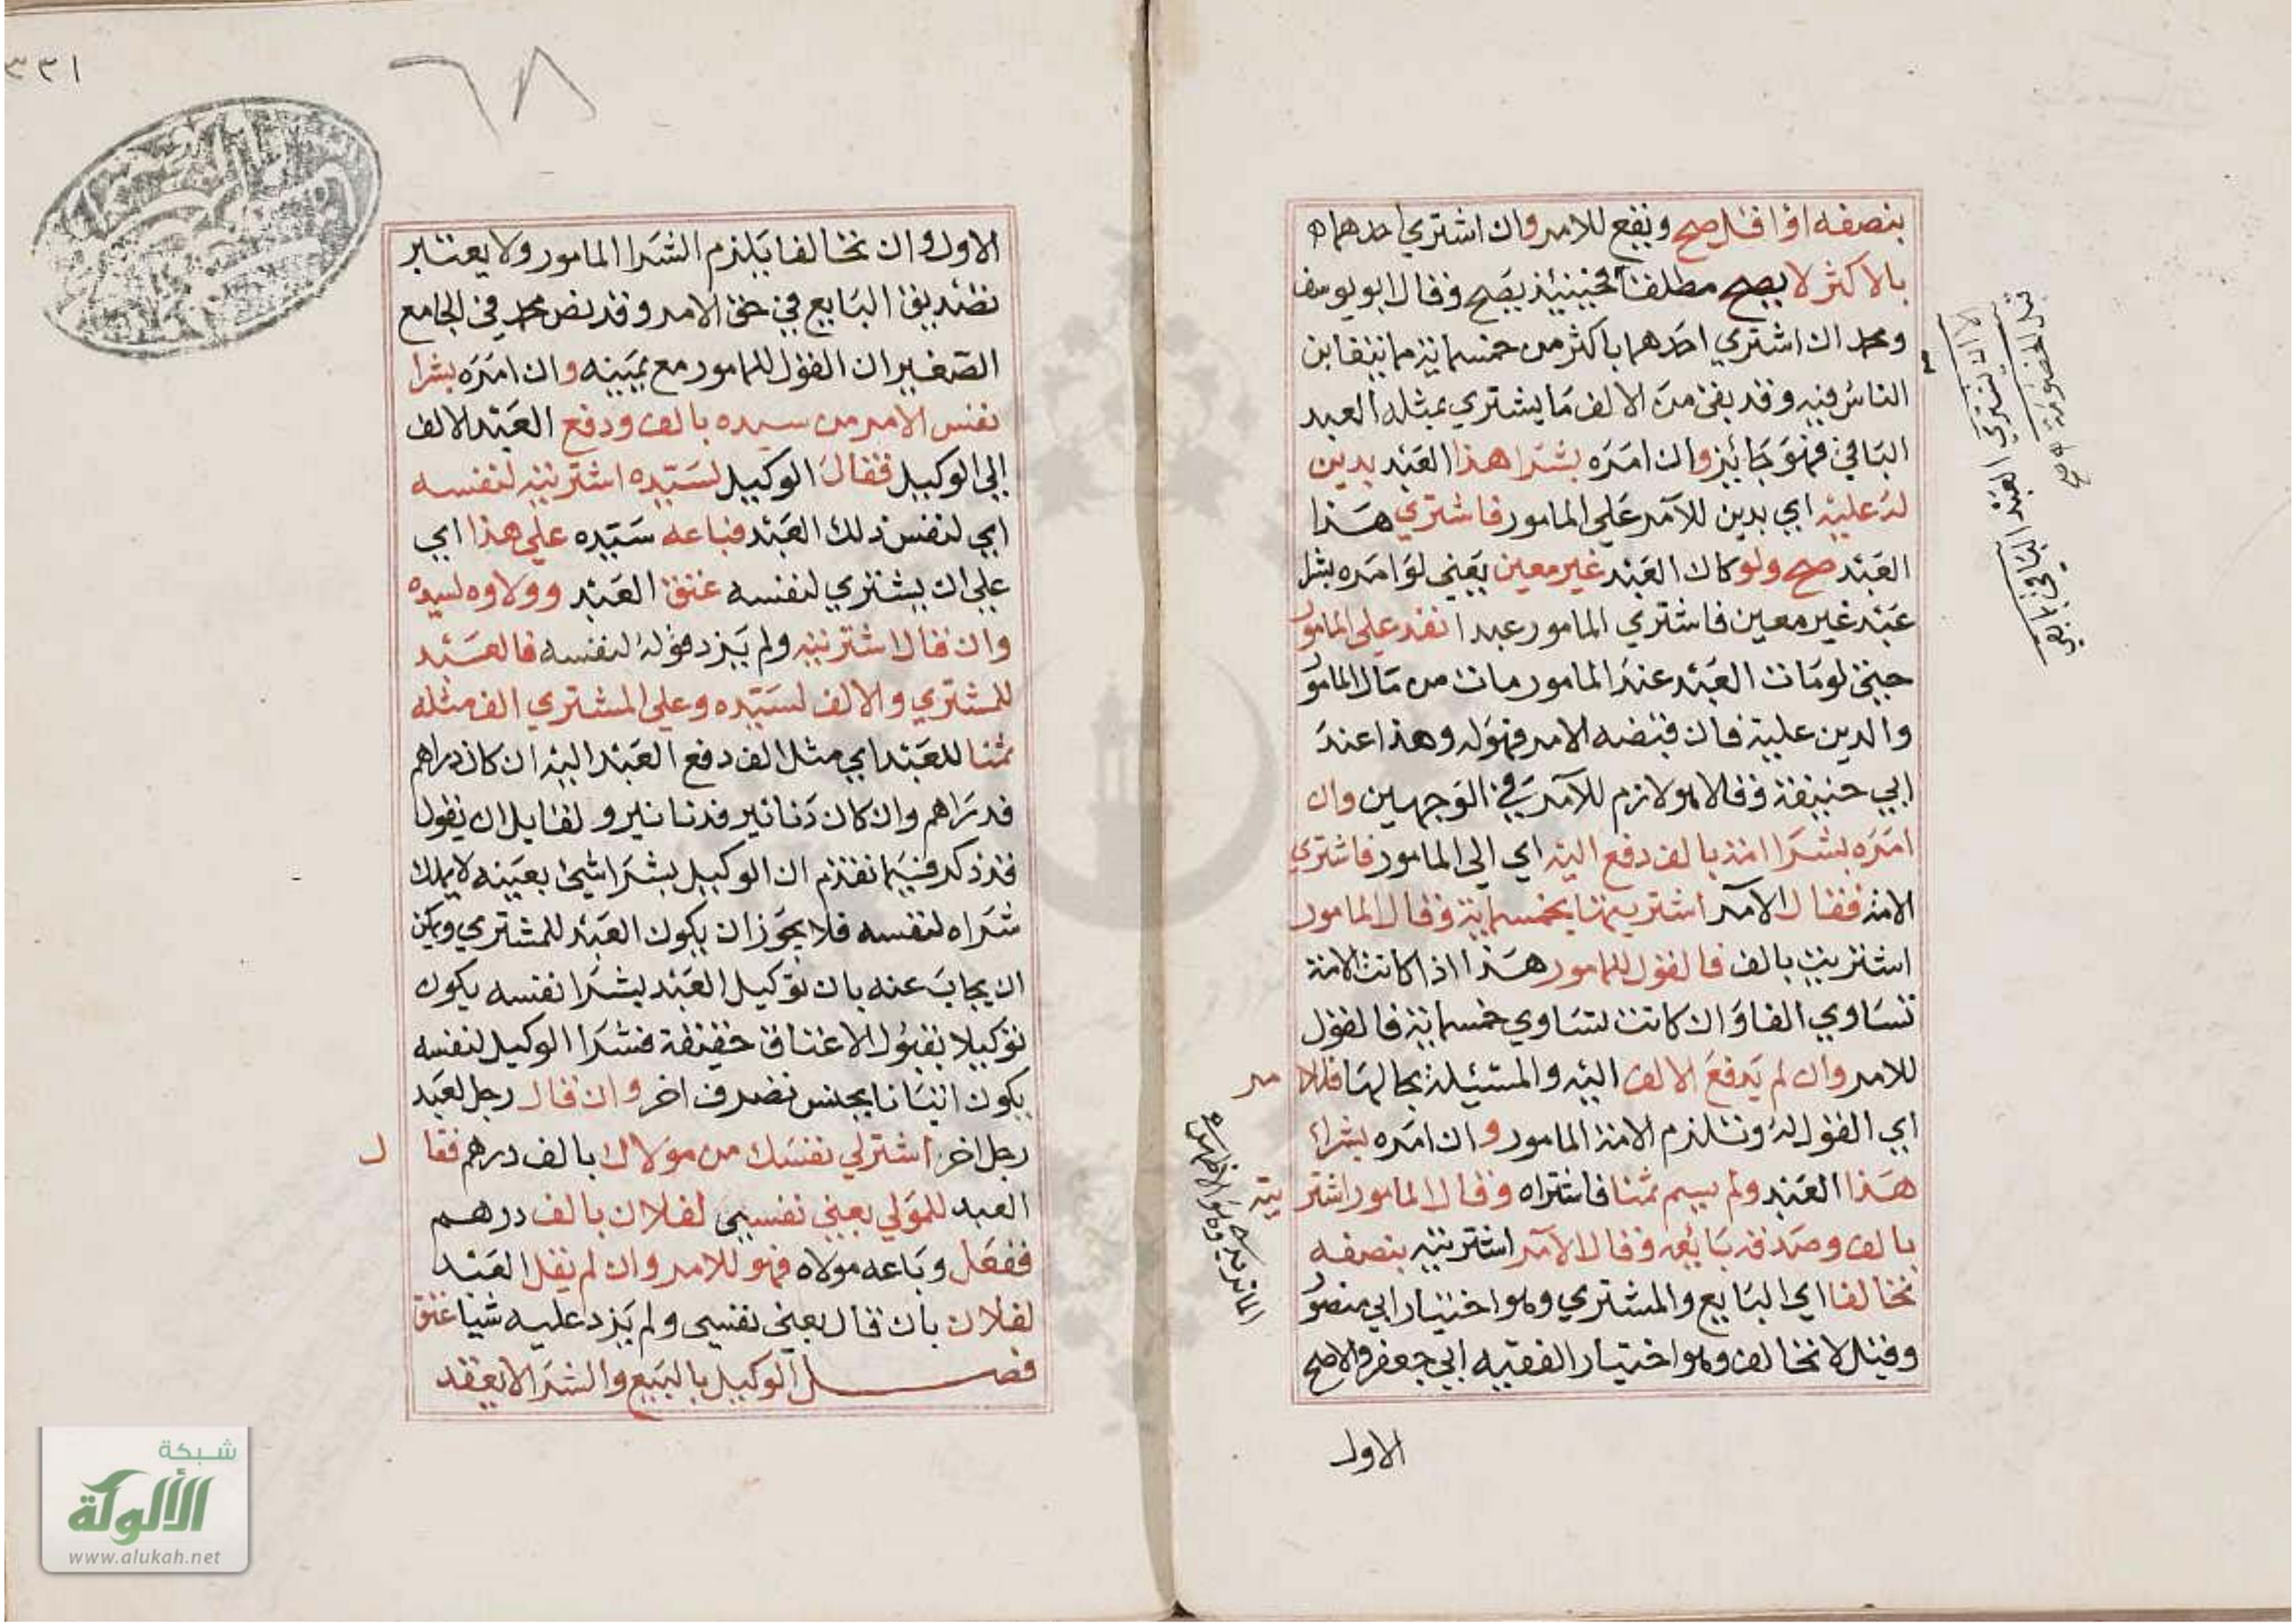 بنصفه او اقل صح ويقع للامر وان اشتري احدهما
بالاكثر لا يصح مطلقا فحينئذ يصح وقال ابو يوسف
ومحمد ان اشتري احدهما باكثر من خمسماية مما يتغابن
الناس فيه وقد بقي من الالف ما يشتري بمثله العبد
الباقي فهو جايز وان امره بشرا هذا العبد بدين
له عليه اي بدين للآمر علي المامور فاشتري هذا
العبد صح ولو كان العبد غير معين يعني لو امره بشرا
عبد غير معين فاشتري المامور عبدا نفذ علي المامور
حتي لو مات العبد عند المامور مات من مال المامور
والدين عليه فان قبضه الامر فهو له وهذا عند
ابي حنيفة وقالا هو لازم للآمر في الوجهين وان
امره بشرا امة بالف دفع اليه اي الي المامور فاشتري
الامة فقال الآمر اشتريتها بخمسماية وقال المامور
اشتريت بالف فالقول للمامور هذا اذا كانت الامة
تساوي الفا وان كانت تساوي خمسماية فالقول
للامر وان لم يدفع الالف اليه والمسئيلة بحالها فللامر
اي القول له وتلزم الامة المامور وان امره بشراء
هذا العبد ولم يسم ثمنا فاشتراه وقال المامور اشتريته
بالف وصدقه بايعه وقال الآمر اشتريته بنصفه
تحالفا اي البايع والمشتري وهو اختيار ابي منصور
وقيل لا تحالف وهو اختيار الفقيه ابي جعفر والاصح
الاول
الا ان يشتري العبد الباقي
قبل الخصومة صح
٣٣١
٦٨
الاول وان تحالفا يلزم الشرا المامور ولا يعتبر
تصديق البايع في حق الامر وقد نص محمد في الجامع
الصغير ان القول للمامور مع يمينه وان امره بشرا
نفس الامر من سيده بالف ودفع العبد الالف
الي الوكيل فقال الوكيل لسيده اشتريته لنفسه
اي لنفس ذلك العبد فباعه سيده علي هذا اي
علي ان يشتري لنفسه عتق العبد وولاوه لسيده
وان قال اشتريته ولم يزد قوله لنفسه فالعبد
للمشتري والالف لسيده وعلي المشتري الف مثله
ثمنا للعبد اي مثل الف دفع العبد اليه ان كان دراهم
فدراهم وان كان دنانير فدنانير ولقايل ان يقول
قد ذكر فيما تقدم ان الوكيل بشرا شي بعينه لا يملك
شراه لنفسه فلا يجوز ان يكون العبد للمشتري ويمكن
ان يجاب عنه بان توكيل العبد بشرا نفسه يكون
توكيلا بقبول الاعتاق حقيقة فشرا الوكيل لنفسه
يكون اتيانا بجنس تصرف اخر وان قال رجل لعبد
رجل اخر اشتر لي نفسك من مولاك بالف درهم فقال
العبد للمولي بعني نفسي لفلان بالف درهم
ففعل وباعه مولاه فهو للامر وان لم يقل العبد
لفلان بان قال بعني نفسي ولم يزد عليه شيا عتق
فصل الوكيل بالبيع والشرا لا يعقد
شبكة
الألوكة
www.alukah.net